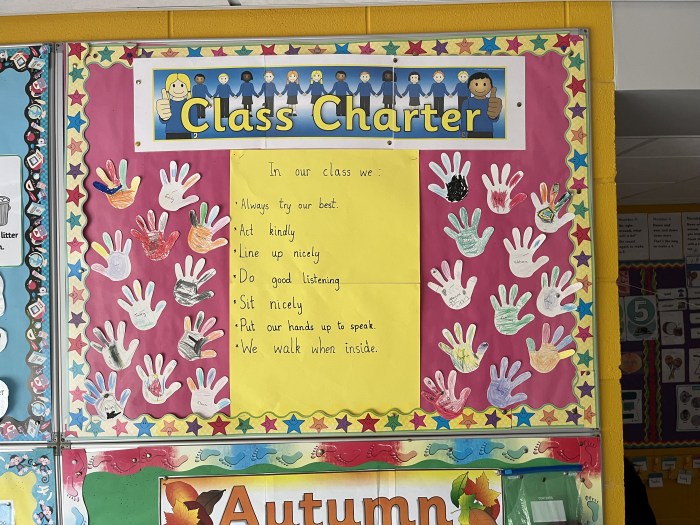 Class Charter
In our class we :
• Always try our best.
• Act kindly
• Line up nicely
• Do good listening
• Sit nicely
• Put our hands up to speak.
• We walk when inside.
litter
Autumn
5